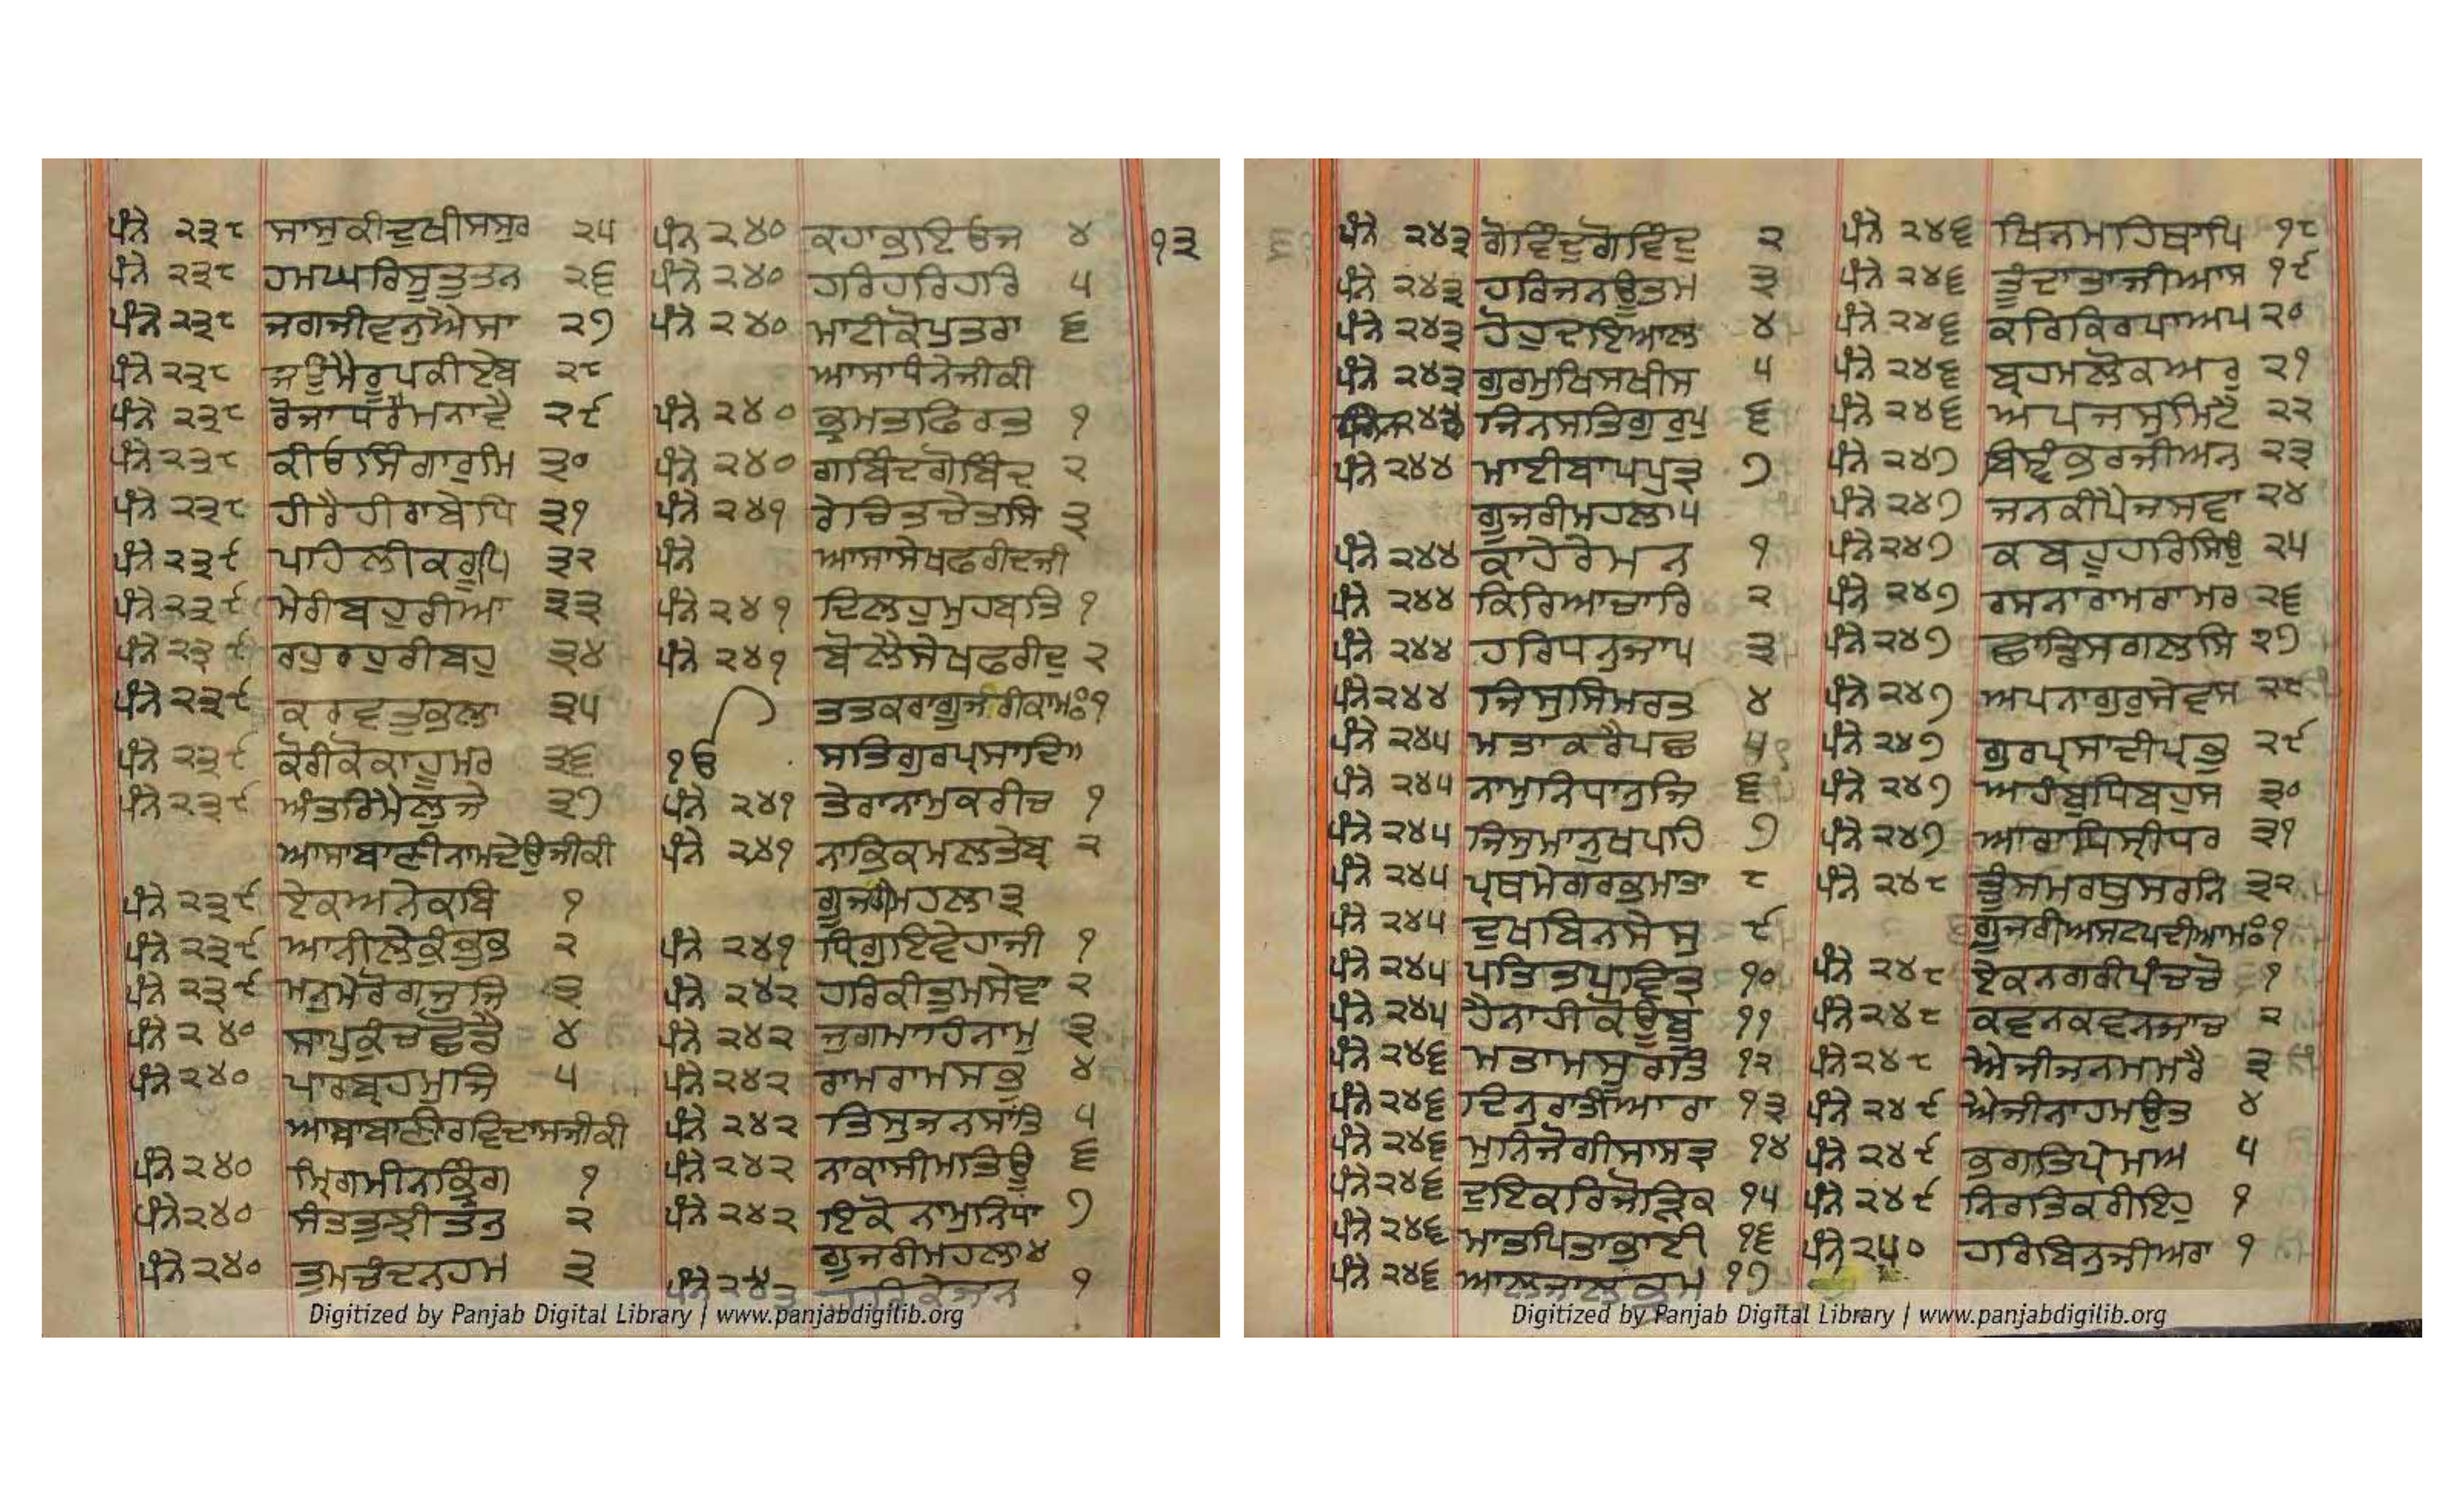 ਪੰਨੇ ੨੩੮ ਸਾਸੁਕੀਦੁਖੀਸਸੁਰ ੨੫
ਪੰਨੇ ੨੩੮ ਹਮਘਰਿਸੂਤੁਤਨ ੨੬
ਪੰਨੇ ੨੩੮ ਜਗਜੀਵਨੁਐਸਾ ੨੭
ਪੰਨੇ ੨੩੮ ਜਉਮੈਰੂਪਕੀਏਬ ੨੮
ਪੰਨੇ ੨੩੮ ਰੋਜਾਧਰੈਮਨਾਵੈ ੨੯
ਪੰਨੇ ੨੩੮ ਕੀਓਸਿੰਗਾਰੁਮਿ ੩੦
ਪੰਨੇ ੨੩੮ ਹੀਰੈਹੀਰਾਬੇਧਿ ੩੧
ਪੰਨੇ ੨੩੯ ਪਹਿਲੀਕਰੂਪਿ ੩੨
ਪੰਨੇ ੨੩੯ ਮੇਰੀਬਹੁਰੀਆ ੩੩
ਪੰਨੇ ੨੩੯ ਰਹੁਰਹੁਰੀਬਹੁ ੩੪
ਪੰਨੇ ੨੩੯ ਕਰਵਤੁਭਲਾ ੩੫
ਪੰਨੇ ੨੩੯ ਕੋਰੀਕੋਕਾਹੂਮਰ ੩੬
ਪੰਨੇ ੨੩੯ ਅੰਤਰਿਮੈਲੁਜੇ ੩੭
ਆਸਾਬਾਣੀਨਾਮਦੇਉਜੀਕੀ
ਪੰਨੇ ੨੩੯ ਏਕਅਨੇਕਬਿ ੧
ਪੰਨੇ ੨੩੯ ਆਨੀਲੇਕੁੰਭਭ ੨
ਪੰਨੇ ੨੩੯ ਮਨੁਮੇਰੋਗਜੁਜਿ ੩
ਪੰਨੇ ੨੪੦ ਸਾਪੁਕੁੰਚਛੋਡੈ ੪
ਪੰਨੇ ੨੪੦ ਪਾਰਬ੍ਰਹਮੁਜਿ ੫
ਆਸਾਬਾਣੀਰਵਿਦਾਸਜੀਕੀ
ਪੰਨੇ ੨੪੦ ਮ੍ਰਿਗਮੀਨਭ੍ਰਿੰਗ ੧
ਪੰਨੇ ੨੪੦ ਸੰਤਤੁਝੀਤਨੁ ੨
ਪੰਨੇ ੨੪੦ ਤੁਮਚੰਦਨਹਮ ੩
ਪੰਨੇ ੨੪੦ ਕਹਾਭਇਓਜ ੪
ਪੰਨੇ ੨੪੦ ਹਰਿਹਰਿਹਰਿ ੫
ਪੰਨੇ ੨੪੦ ਮਾਟੀਕੋਪੁਤਰਾ ੬
ਆਸਾਧੰਨੇਜੀਕੀ
ਪੰਨੇ ੨੪੦ ਭ੍ਰਮਤਫਿਰਤ ੧
ਪੰਨੇ ੨੪੦ ਗਬਿੰਦਗੋਬਿੰਦ ੨
ਪੰਨੇ ੨੪੧ ਰੇਚਿਤਚੇਤਸਿ ੩
ਪੰਨੇ ਆਸਾਸੇਖਫਰੀਦਜੀ
ਪੰਨੇ ੨੪੧ ਦਿਲਹੁਮੁਹਬਤਿ ੧
ਪੰਨੇ ੨੪੧ ਬੋਲੈਸੇਖਫਰੀਦੁ ੨
ਤਤਕਰਾਗੂਜਰੀਕਾਮਃ੧
ੴ ਸਤਿਗੁਰਪ੍ਰਸਾਦਿ॥
ਪੰਨੇ ੨੪੧ ਤੇਰਾਨਾਮੁਕਰੀਚ ੧
ਪੰਨੇ ੨੪੧ ਨਾਭਿਕਮਲਤੇਬ੍ਰ ੨
ਗੂਜਰੀਮਹਲਾ੩
ਪੰਨੇ ੨੪੧ ਧ੍ਰਿਗੁਇਵੇਹਾਜੀ ੧
ਪੰਨੇ ੨੪੨ ਹਰਿਕੀਤੁਮਸੇਵਾ ੨
ਪੰਨੇ ੨੪੨ ਜੁਗਮਾਹਿਨਾਮੁ ੩
ਪੰਨੇ ੨੪੨ ਰਾਮਰਾਮਸਭੁ ੪
ਪੰਨੇ ੨੪੨ ਤਿਸੁਜਨਸਾਂਤਿ ੫
ਪੰਨੇ ੨੪੨ ਨਾਕਾਸੀਮਤਿਊ ੬
ਪੰਨੇ ੨੪੨ ਇਕੋਨਾਮੁਨਿਧਾ ੭
ਗੂਜਰੀਮਹਲਾ੪
ਪੰਨੇ ੨੪੩ ਹਰਿਕੇਜਨ ੧
੧੩
ਪੰਨੇ ੨੪੩ ਗੋਵਿੰਦੁਗੋਵਿੰਦੁ ੨
ਪੰਨੇ ੨੪੩ ਹਰਿਜਨਊਤਮ ੩
ਪੰਨੇ ੨੪੩ ਹੋਹੁਦਇਆਲ ੪
ਪੰਨੇ ੨੪੩ ਗੁਰਮੁਖਿਸਖੀਸ ੫
ਜਿਨਸਤਿਗੁਰੁਪੁ ੬
ਪੰਨੇ ੨੪੪ ਮਾਈਬਾਪਪੁਤ੍ਰ ੭
ਗੂਜਰੀਮਹਲਾ੫
ਪੰਨੇ ੨੪੪ ਕਾਹੇਰੇਮਨ ੧
ਪੰਨੇ ੨੪੪ ਕਿਰਿਆਚਾਰਿ ੨
ਪੰਨੇ ੨੪੪ ਹਰਿਧਨੁਜਾਪ ੩
ਪੰਨੇ ੨੪੪ ਜਿਸੁਸਿਮਰਤ ੪
ਪੰਨੇ ੨੪੫ ਮਤਾਕਰੈਪਛ ੫
ਪੰਨੇ ੨੪੫ ਨਾਮੁਨਿਧਾਨੁਜਿ ੬
ਪੰਨੇ ੨੪੫ ਜਿਸੁਮਾਨੁਖਪਹਿ ੭
ਪੰਨੇ ੨੪੫ ਪ੍ਰਥਮੇਗਰਭਮਾਤਾ ੮
ਪੰਨੇ ੨੪੫ ਦੁਖਬਿਨਸੇਸੁ ੯
ਪੰਨੇ ੨੪੫ ਪਤਿਤਪਵਿਤ੍ਰ ੧੦
ਪੰਨੇ ੨੪੫ ਹੈਨਾਹੀਕੋਊਬੂ ੧੧
ਪੰਨੇ ੨੪੬ ਮਤਾਮਸੂਰਤਿ ੧੨
ਪੰਨੇ ੨੪੬ ਦਿਨੁਰਾਤੀਆਰਾ ੧੩
ਪੰਨੇ ੨੪੬ ਮੁਨਿਜੋਗੀਸਾਸਤ੍ਰ ੧੪
ਪੰਨੇ ੨੪੬ ਦੁਇਕਰਿਜੋੜਿਕ ੧੫
ਪੰਨੇ ੨੪੬ ਮਾਤਪਿਤਾਭਾਈ ੧੬
ਪੰਨੇ ੨੪੬ ਆਲਜਾਲਭ੍ਰਮ ੧੭
ਪੰਨੇ ੨੪੬ ਖਿਨਮਹਿਥਾਪਿ ੧੮
ਪੰਨੇ ੨੪੬ ਤੂੰਦਾਤਾਜੀਆਸ ੧੯
ਪੰਨੇ ੨੪੬ ਕਰਿਕਿਰਪਾਅਪ ੨੦
ਪੰਨੇ ੨੪੬ ਬ੍ਰਹਮਲੋਕਅਰੁ ੨੧
ਪੰਨੇ ੨੪੬ ਅਪਜਸੁਮਿਟੈ ੨੨
ਪੰਨੇ ੨੪੭ ਬਿਸ੍ਵੰਭਰਜੀਅਨ ੨੩
ਪੰਨੇ ੨੪੭ ਜਨਕੀਪੈਜਸਵਾ ੨੪
ਪੰਨੇ ੨੪੭ ਕਬਹੂਹਰਿਸਿਉ ੨੫
ਪੰਨੇ ੨੪੭ ਰਸਨਾਰਾਮਰਾਮਰ ੨੬
ਪੰਨੇ ੨੪੭ ਛਾਡਿਸਗਲਸਿ ੨੭
ਪੰਨੇ ੨੪੭ ਅਪਨਾਗੁਰੁਸੇਵਸ ੨੮
ਪੰਨੇ ੨੪੭ ਗੁਰਪ੍ਰਸਾਦੀਪ੍ਰਭੁ ੨੯
ਪੰਨੇ ੨੪੭ ਅਹੰਬੁਧਿਬਹੁਸ ੩੦
ਪੰਨੇ ੨੪੭ ਆਰਾਧਿਸ੍ਰੀਧਰ ੩੧
ਪੰਨੇ ੨੪੮ ਤੂੰਸਮਰਥੁਸਰਨਿ ੩੨
ਗੂਜਰੀਅਸਟਪਦੀਆਮਃ੧
ਪੰਨੇ ੨੪੮ ਏਕਨਗਰੀਪੰਚਚੋ ੧
ਪੰਨੇ ੨੪੮ ਕਵਨਕਵਨਜਾਚ ੨
ਪੰਨੇ ੨੪੮ ਐਜੀਜਨਮਮਰੈ ੩
ਪੰਨੇ ੨੪੯ ਐਜੀਨਾਹਮਉਤ ੪
ਪੰਨੇ ੨੪੯ ਭਗਤਿਪ੍ਰੇਮਅ ੫
ਪੰਨੇ ੨੪੯ ਨਿਰਤਿਕਰੀਇਹੁ ੧
ਪੰਨੇ ੨੫੦ ਹਰਿਬਿਨੁਜੀਅਰਾ ੧
Digitized by Panjab Digital Library | www.panjabdigilib.org
Digitized by Panjab Digital Library | www.panjabdigilib.org